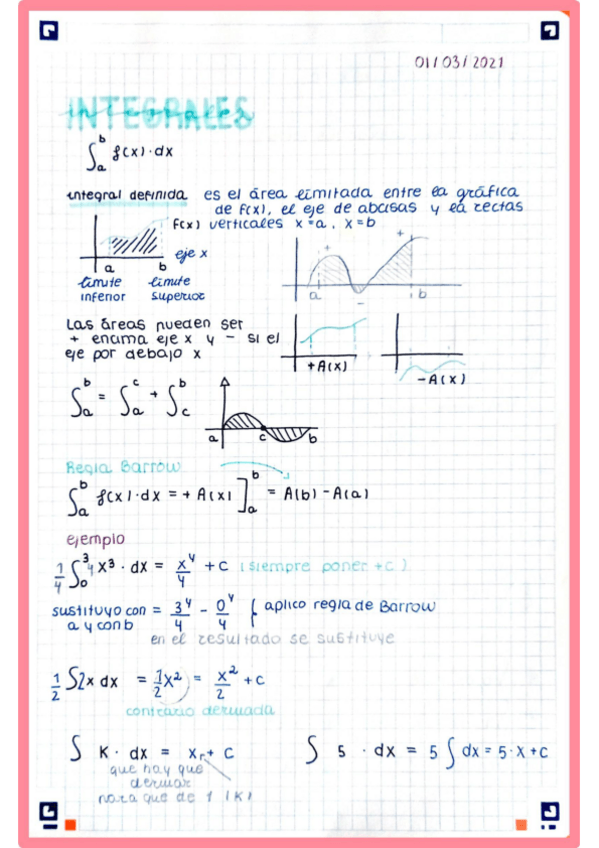 01/03/2021
INTEGRALES
∫ₐᵇ f(x)·dx
integral definida es el área limitada entre la gráfica
de f(x), el eje de abcisas y la rectas
f(x) verticales x=a, x=b
eje x
a b
límite límite
inferior superior
+ +
a - b
Las áreas pueden ser
+ encima eje x y - si el
eje por debajo x
+A(x) -A(x)
∫ₐᵇ = ∫ₐᶜ + ∫꜀ᵇ
a c b
Regla Barrow
∫ₐᵇ f(x)·dx = + A(x)]ₐᵇ = A(b) - A(a)
ejemplo
1/4 ∫₀³ 4x³·dx = x⁴/4 + c (siempre poner +c)
sustituyo con = 3⁴/4 - 0⁴/4 { aplico regla de Barrow
a y con b
en el resultado se sustituye
1/2 ∫2x dx = 1/2 x² = x²/2 + c
contrario derivada
∫ K· dx = x + c ∫ 5 · dx = 5 ∫ dx = 5·x + c
que hay que
derivar
para que de 1 (K)